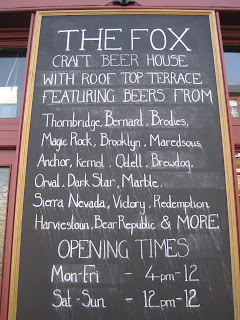 THE FOX
CRAFT BEER HOUSE
WITH ROOF TOP TERRACE
FEATURING BEERS FROM
Thornbridge, Bernard, Brodies,
Magic Rock, Brooklyn, Maredsous,
Anchor, Kernel, Odell, Brewdog,
Orval, Dark Star, Marble,
Sierra Nevada, Victory, Redemption
Harviestoun, Bear Republic & MORE
OPENING TIMES
Mon-Fri - 4pm-12
Sat-Sun - 12pm-12